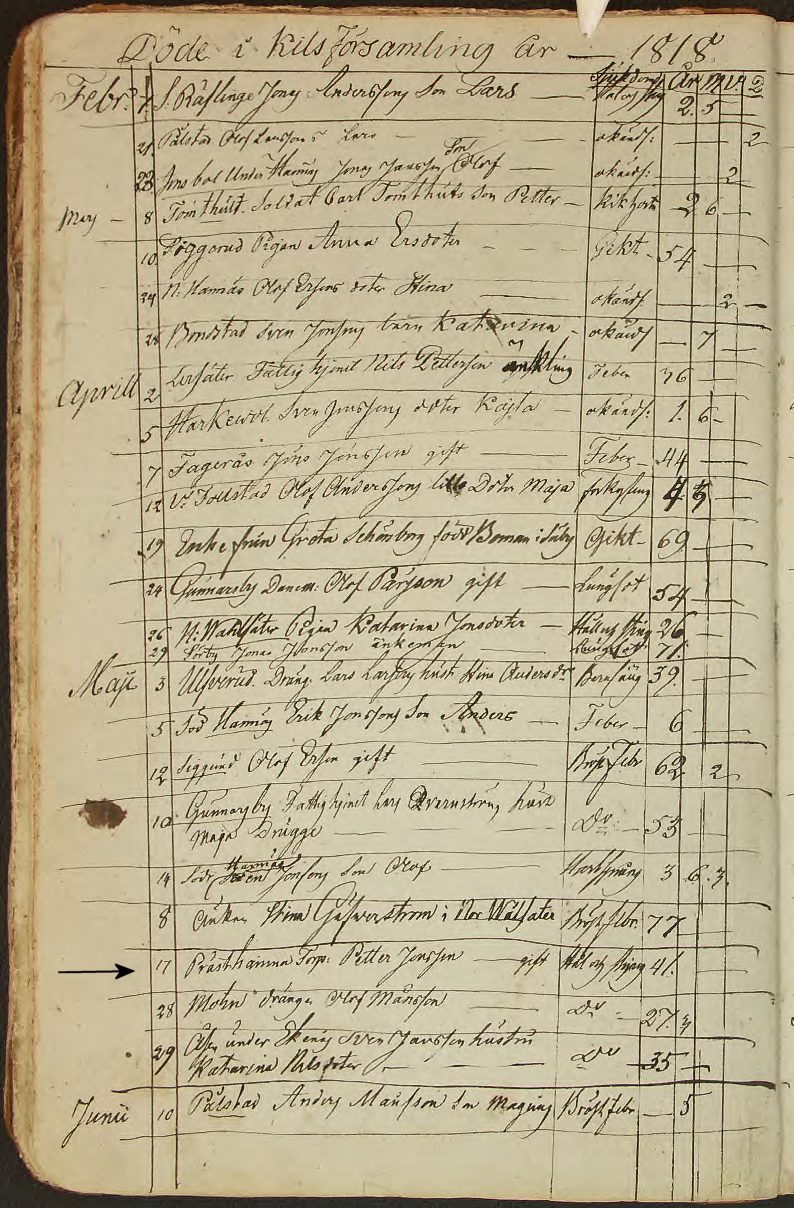 Döde i Kils församling år — 1818
Sjukdom År m v. D
Febr. 7. S. Räflinge Jonas Anderssons Son Lars — Håll och Styng 2. 5
21 Pålstad Olof Larssons barn — okänd: 2
28 under Hannäs Jonas Jansson Son Olof — okänd: 2
Mars — 8 Tomthult. Soldat Carl Tomthults Son Petter — Kikhosta 2 6 —
10 Pigan Anna Ersdoter — Gikt — 54 —
24 N. Hannäs Olof Ersons doter Stina — okänd 2 —
28 Bondstad Sven Jonsons barn Katarina — okänd — 7 —
Aprill 2 Fattighjonet Nils Pettersson änkling Feber 76 —
5 Sven Jonssons doter Kajsa — okänd: 1. 6 —
7 Fagerås Jöns Jönsson gift — Feber 44 —
12 Olof Anderssons lilla Doter Maja förkylning 4. 3
19 Enkefrun Greta Schönborg född Boman i Säby Gikt — 69 —
24 Gunnarsby Danem: Olof Pärsson gift — Lungsot 54 —
26 N. Wahlsäter Pigan Katarina Jonsdoter — Håll och Styng 26 —
29 Jonas Jonsson änkeman — Lungsot 71.
Maji 3 Ulfverud. Dräng. Lars Larssons hust. Stina Andersdr Barnsäng 39.
5 Söd Hannäs Erik Jonssons Son Anders — Feber — 6 —
12 Olof Erson gift — Bröstfeber 62 2
10 Gunnarsby Fattighjonet Lars Qvarnström hust
Maja Brügge — Do — 53 —
14 Södr Hannäs Sven Jonssons Son Olof — 3 6. 3.
8 Änkan Stina Gäfverström i Nor Wålsäter Bröstfebr. 77 —
17 Prästhamna Torp: Petter Jonsson — gift Håll och Styng 41.
28 Mohn drängen Olof Månsson — Do 27. 3
29 Åsen under Ekenäs Sven Jansson hustru
Katarina Nilsdoter — Do 35 —
Junii 10 Pålstad Anders Månsson Son Magnus Bröstfebr — 5